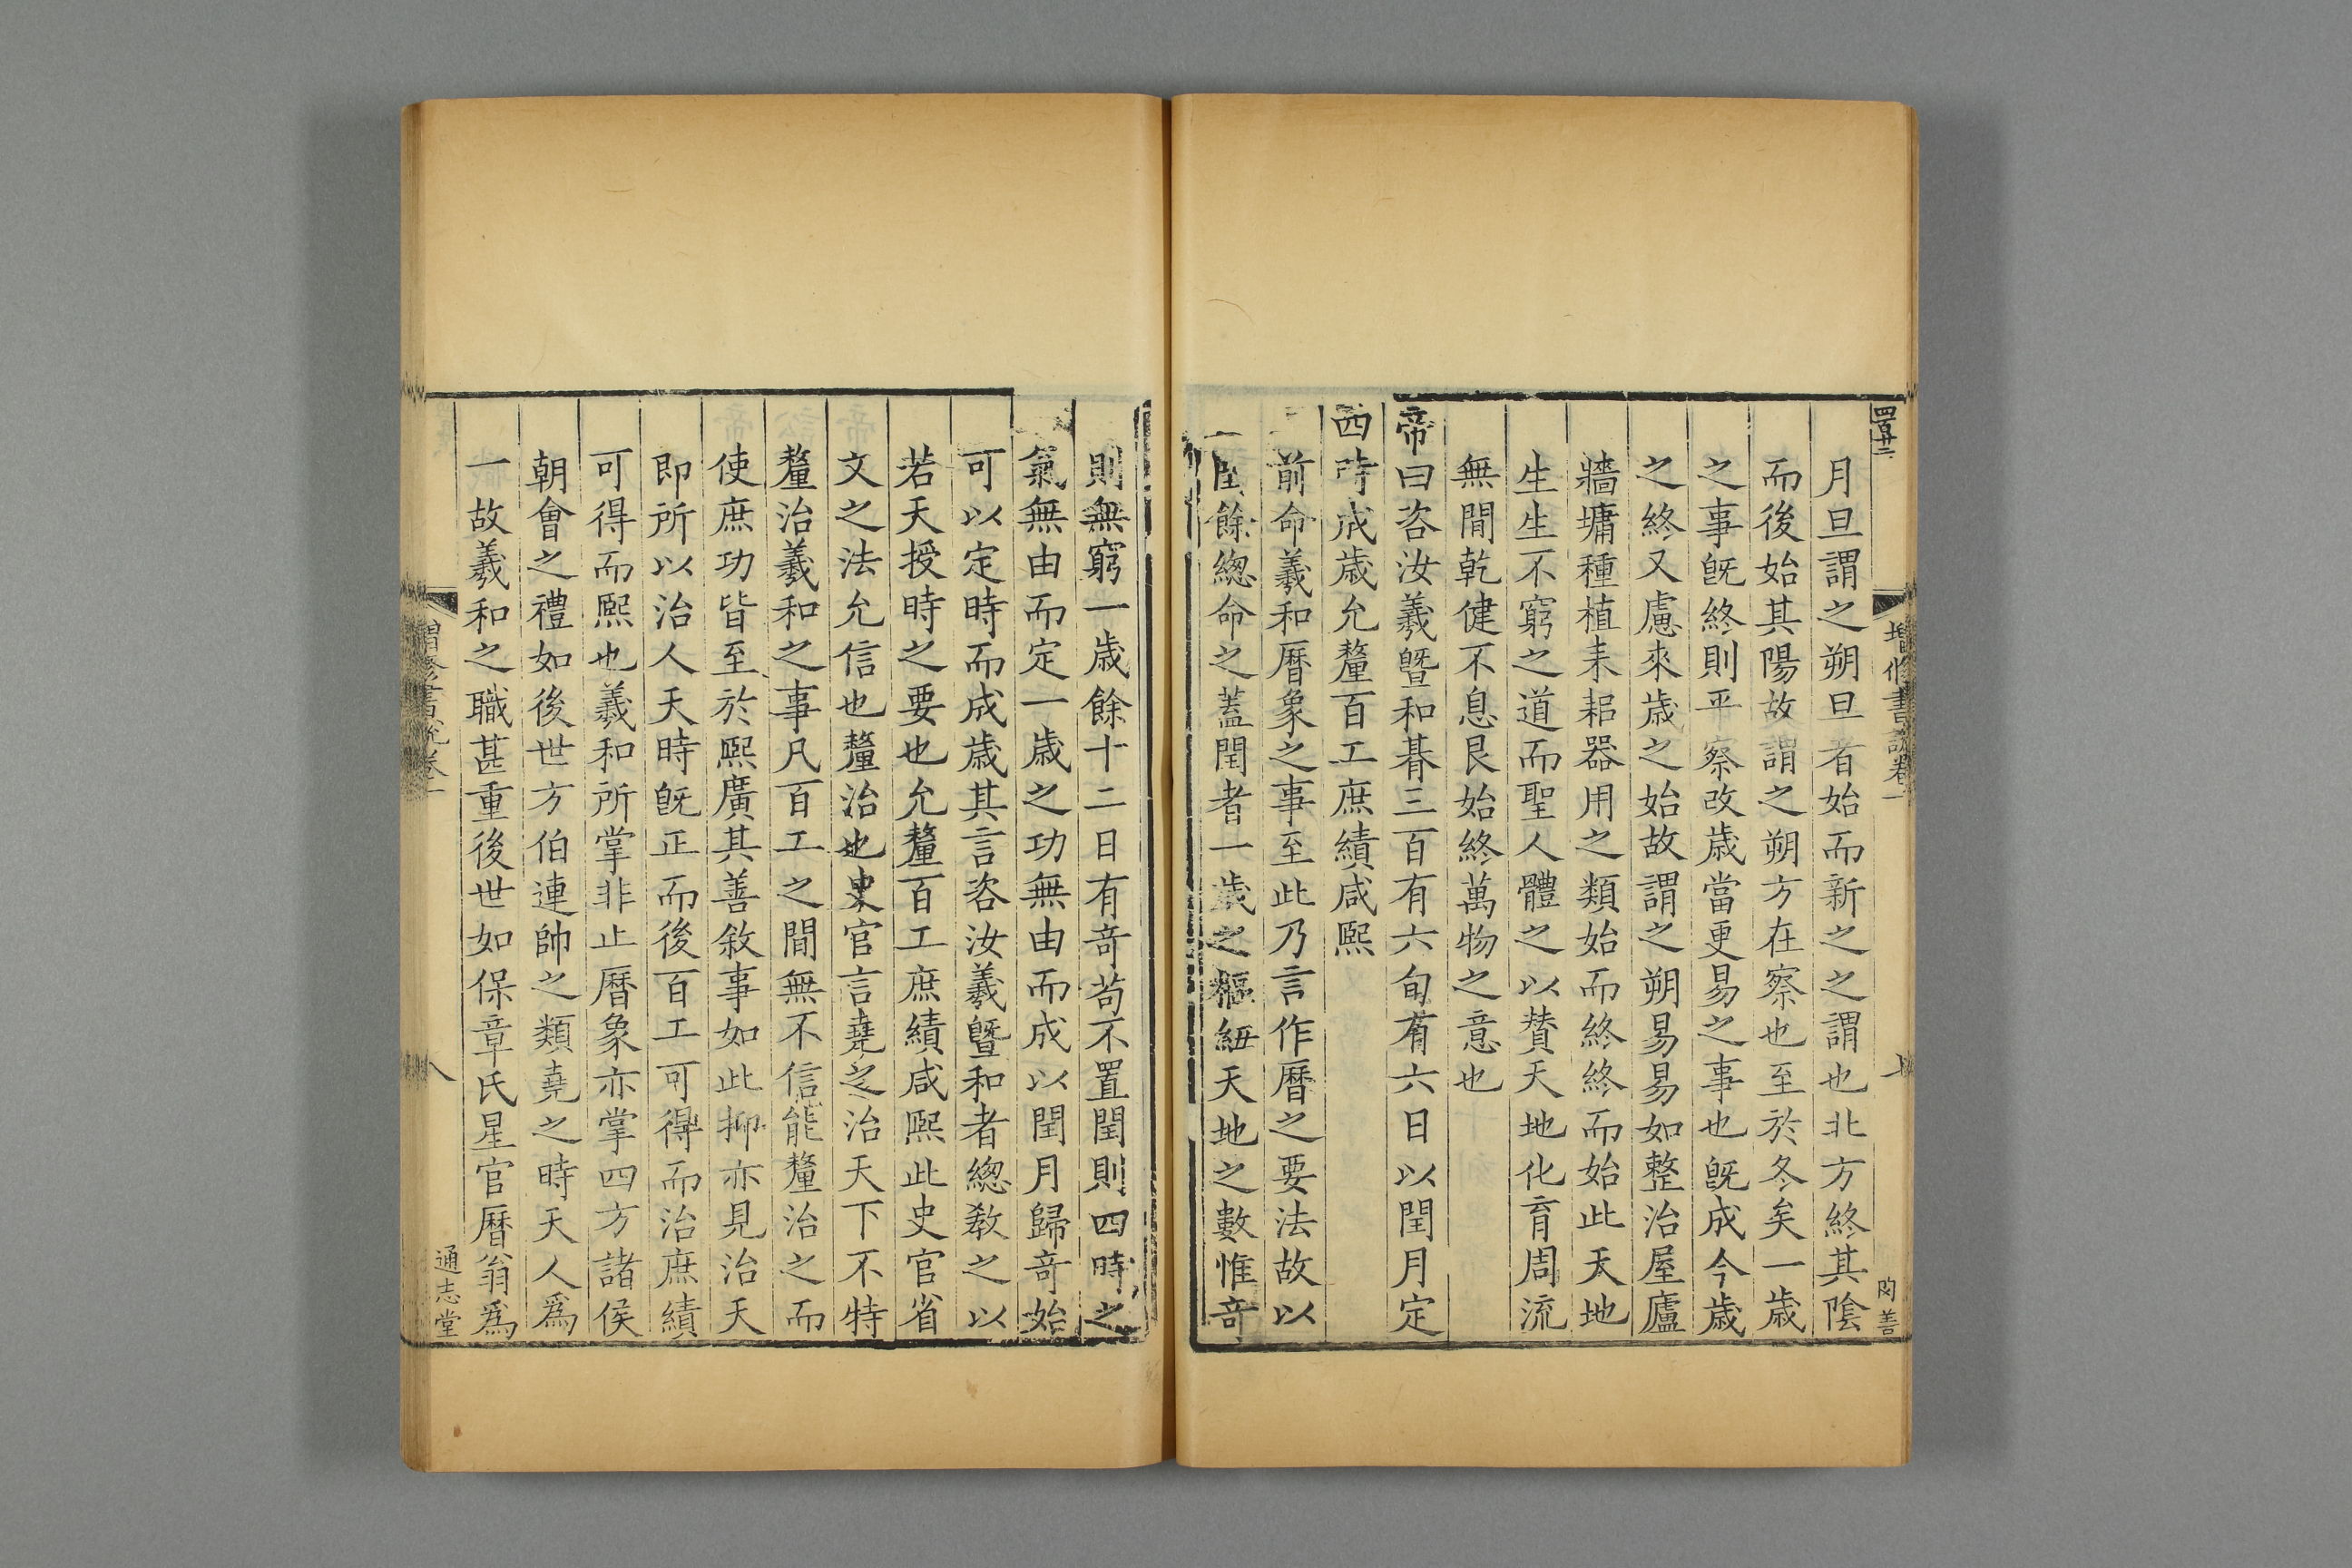 四百廿二
增修書說卷一
七
閔善
月旦謂之朔旦者始而新之之謂也北方終其陰
而後始其陽故謂之朔方在察也至於冬矣一歲
之事旣終則平察改歲當更易之事也旣成今歲
之終又慮來歲之始故謂之朔易易如整治屋廬
牆墉種植耒耜器用之類始而終終而始此天地
生生不窮之道而聖人體之以贊天地化育周流
無間乾健不息艮始終萬物之意也
帝曰咨汝羲曁和朞三百有六旬有六日以閏月定
四時成歲允釐百工庶績咸熙
前命羲和曆象之事至此乃言作曆之要法故以
閏餘總命之蓋閏者一歲之樞紐天地之數惟奇
則無窮一歲餘十二日有奇苟不置閏則四時之
氣無由而定一歲之功無由而成以閏月歸奇始
可以定時而成歲其言咨汝羲曁和者總敎之以
若天授時之要也允釐百工庶績咸熙此史官省
文之法允信也釐治也史官言堯之治天下不特
釐治羲和之事凡百工之間無不信能釐治之而
使庶功皆至於熙廣其善敘事如此抑亦見治天
即所以治人天時旣正而後百工可得而治庶績
可得而熙也羲和所掌非止曆象亦掌四方諸侯
朝會之禮如後世方伯連帥之類堯之時天人爲
一故羲和之職甚重後世如保章氏星官曆翁爲
增修書說卷一
八
通志堂